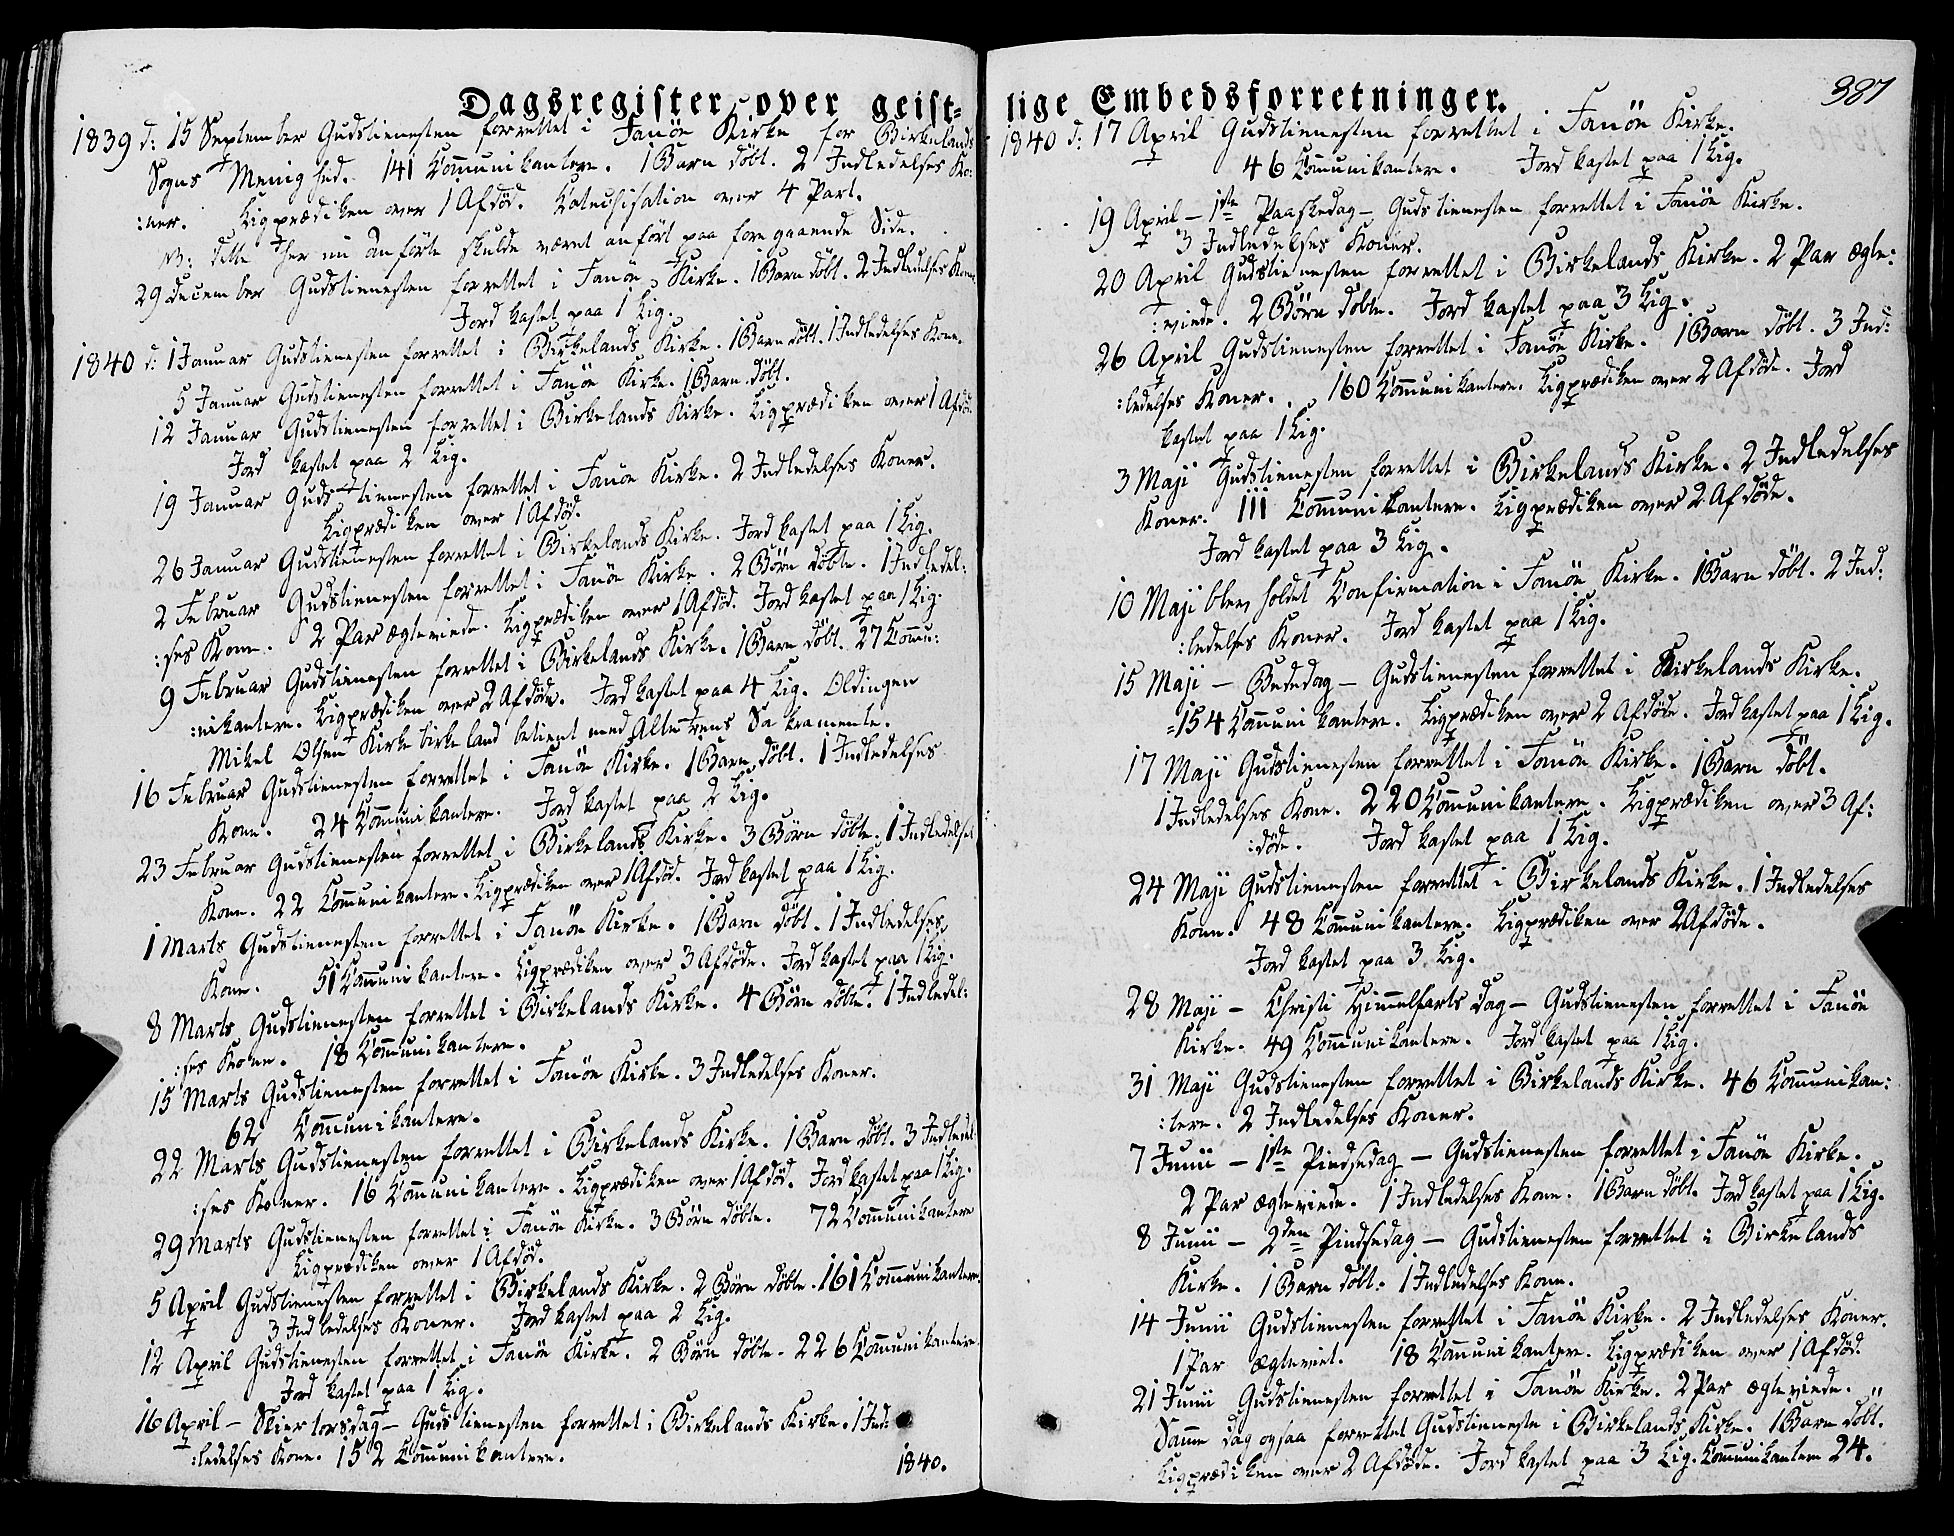 Dagsregister over geist-
1839 d: 15 September Gudstienesten forrettet i Fanöe Kirke for Birkelands
Sogns Menighed. 141 Com̅unikantere. 1 Barn döbt. 2 Indledelses Ko:
:ner. Ligprædiken over 1 Afdöd. Catechisation over 4 Part.
NB: dette her nu anförte skulde været anfört paa foregaaende Side.
29 December Gudstienesten forrettet i Fanöe Kirke. 1 Barn döbt. 2 Indledelses Koner.
Jord kastet paa 1 Lig.
1840 d: 1 Januar Gudstienesten forrettet i Birkelands Kirke. 1 Barn döbt. 1 Indledelses Kone.
5 Januar Gudstienesten forrettet i Fanöe Kirke. 1 Barn döbt.
12 Januar Gudstienesten forrettet i Birkelands Kirke. Ligprædiken over 1 Afdöd.
Jord kastet paa 2 Lig.
19 Januar Gudstienesten forrettet i Fanöe Kirke. 2 Indledelses Koner.
Ligprædiken over 1 Afdöd.
26 Januar Gudstienesten forrettet i Birkelands Kirke. Jord kastet paa 1 Lig.
2 Februar Gudstienesten forrettet i Fanöe Kirke. 2 Börn döbte. 1 Indledel:
:ses Kone. 2 Par ægteviede. Ligprædiken over 1 Afdöd. Jord kastet paa 1 Lig.
9 Februar Gudstienesten forrettet i Birkelands Kirke. 1 Barn döbt. 27 Com̅u:
:nikantere. Ligprædiken over 2 Afdöde. Jord kastet paa 4 Lig. Oldingen
Mikel Olsen Kirkebirkeland betient med Alterens Sakramente.
16 Februar Gudstienesten forrettet i Fanöe Kirke. 1 Barn döbt. 1 Indledelses
Kone. 24 Com̅unikantere. Jord kastet paa 2 Lig.
23 Februar Gudstienesten forrettet i Birkelands Kirke. 3 Börn döbte. 1 Indledelses
Kone. 22 Com̅unikantere. Ligprædiken over 1 Afdöd. Jord kastet paa 1 Lig.
1 Marts Gudstienesten forrettet i Fanöe Kirke. 1 Barn döbt. 1 Indledelses
Kone. 51 Com̅unikantere. Ligprædiken over 3 Afdöde. Jord kastet paa 1 Lig.
8 Marts Gudstienesten forrettet i Birkelands Kirke. 4 Börn döbte. 1 Indledel:
:ses Kone. 18 Com̅unikantere.
15 Marts Gudstienesten forrettet i Fanöe Kirke. 3 Indledelses Koner.
62 Com̅unikantere.
22 Marts Gudstienesten forrettet i Birkelands Kirke. 1 Barn döbt. 3 Indledel:
:ses Koner. 16 Com̅unikantere. Ligprædiken over 1 Afdöd. Jord kastet paa 1 Lig.
29 Marts Gudstienesten forrettet i Fanöe Kirke. 3 Börn döbte. 72 Com̅unikantere
Ligprædiken over 1 Afdöd.
5 April Gudstienesten forrettet i Birkelands Kirke. 2 Börn döbte. 161 Com̅unikantere.
3 Indledelses Koner. Jord kastet paa 2 Lig.
12 April Gudstienesten forrettet i Fanöe Kirke. 2 Börn döbte. 226 Com̅unikantere.
Jord kastet paa 1 Lig.
16 April - Skiertorsdag - Gudstienesten forrettet i Birkelands Kirke. 1 Ind:
:ledelses Kone. 152 Com̅unikantere.
1840.
lige Embedsforretninger.
387
1840 d: 17 April Gudstienesten forrettet i Fanöe Kirke.
46 Com̅unikantere. Jord kastet paa 1 Lig.
19 April - 1ste Paaskedag - Gudstienesten forrettet i Fanöe Kirke.
3 Indledelses Koner.
20 April Gudstienesten forrettet i Birkelands Kirke. 2 Par ægte:
:viede. 2 Börn döbte. Jord kastet paa 3 Lig.
26 April Gudstienesten forrettet i Fanöe Kirke. 1 Barn döbt. 3 Ind:
:ledelses Koner. 160 Com̅unikantere. Ligprædiken over 2 Afdöde. Jord
kastet paa 1 Lig.
3 Maji Gudstienesten forrettet i Birkelands Kirke. 2 Indledelses
Koner. 111 Com̅unikantere. Ligprædiken over 2 Afdöde.
Jord kastet paa 3 Lig.
10 Maji blev holdet Confirmation i Fanöe Kirke. 1 Barn döbt. 2 Ind:
:ledelses Koner. Jord kastet paa 1 Lig.
15 Maji - Bededag - Gudstienesten forrettet i Birkelands Kirke.
=154 Com̅unikantere. Ligprædiken over 2 Afdöde. Jord kastet paa 1 Lig.
17 Maji Gudstienesten forrettet i Fanöe Kirke. 1 Barn döbt.
1 Indledelses Kone. 220 Com̅unikantere. Ligprædiken over 3 Af:
:döde. Jord kastet paa 1 Lig.
24 Maji Gudstienesten forrettet i Birkelands Kirke. 1 Indledelses
Kone. 48 Com̅unikantere. Ligprædiken over 2 Afdöde.
Jord kastet paa 3 Lig.
28 Maji - Christi Himmelfarts Dag - Gudstienesten forrettet i Fanöe
Kirke. 49 Com̅unikantere. Jord kastet paa 1 Lig.
31 Maji Gudstienesten forrettet i Birkelands Kirke. 46 Com̅unikan:
:tere. 2 Indledelses Koner.
7 Junii - 1ste Pindsedag - Gudstienesten forrettet i Fanöe Kirke.
2 Par ægteviede. 1 Indledelses Kone. 1 Barn döbt. Jord kastet paa 1 Lig.
8 Junii - 2den Pindsedag - Gudstienesten forrettet i Birkelands
Kirke. 1 Barn döbt. 1 Indledelses Kone.
14 Junii Gudstienesten forrettet i Fanöe Kirke. 2 Indledelses Koner.
1 Par ægteviet. 18 Com̅unikantere. Ligprædiken over 1 Afdöd.
21 Junii Gudstienesten forrettet i Fanöe Kirke. 2 Par ægteviede.
Samme Dag ogsaa forrettet Gudstieneste i Birkelands Kirke. 1 Barn döbt.
Ligprædiken over 2 Afdöde. Jord kastet paa 3 Lig. Com̅unikantere 24.